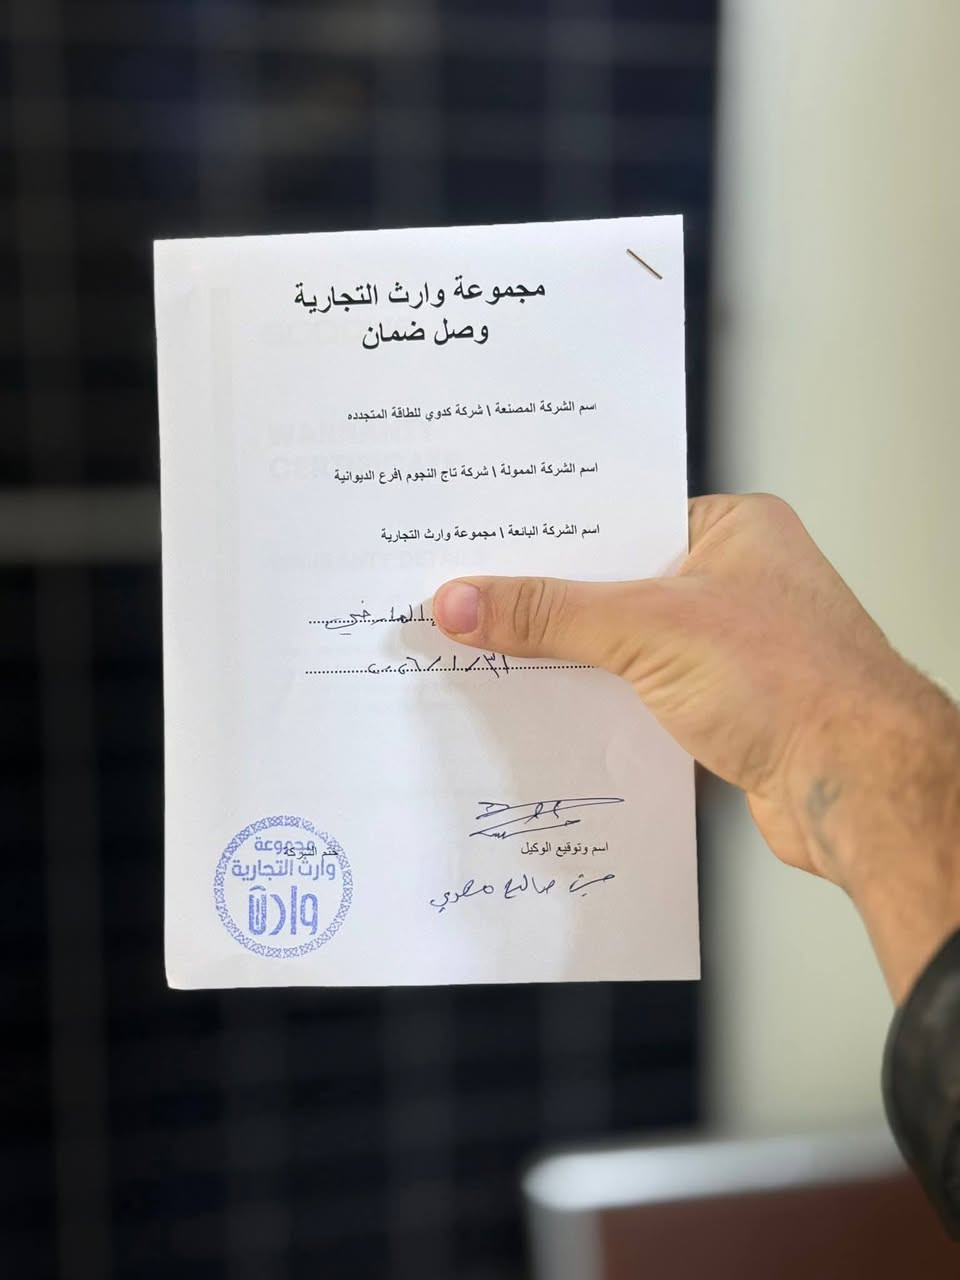 مجموعة وارث التجارية
وصل ضمان
اسم الشركة المصنعة \ شركة كدوي للطاقة المتجدده
اسم الشركة الممولة \ شركة تاج النجوم \فرع الديوانية
اسم الشركة البائعة \ مجموعة وارث التجارية
٢٠٢٦/١/٣١
اسم وتوقيع الوكيل
صالح مهدي
ختم الشركة
مجموعة
وارث التجارية
وارث